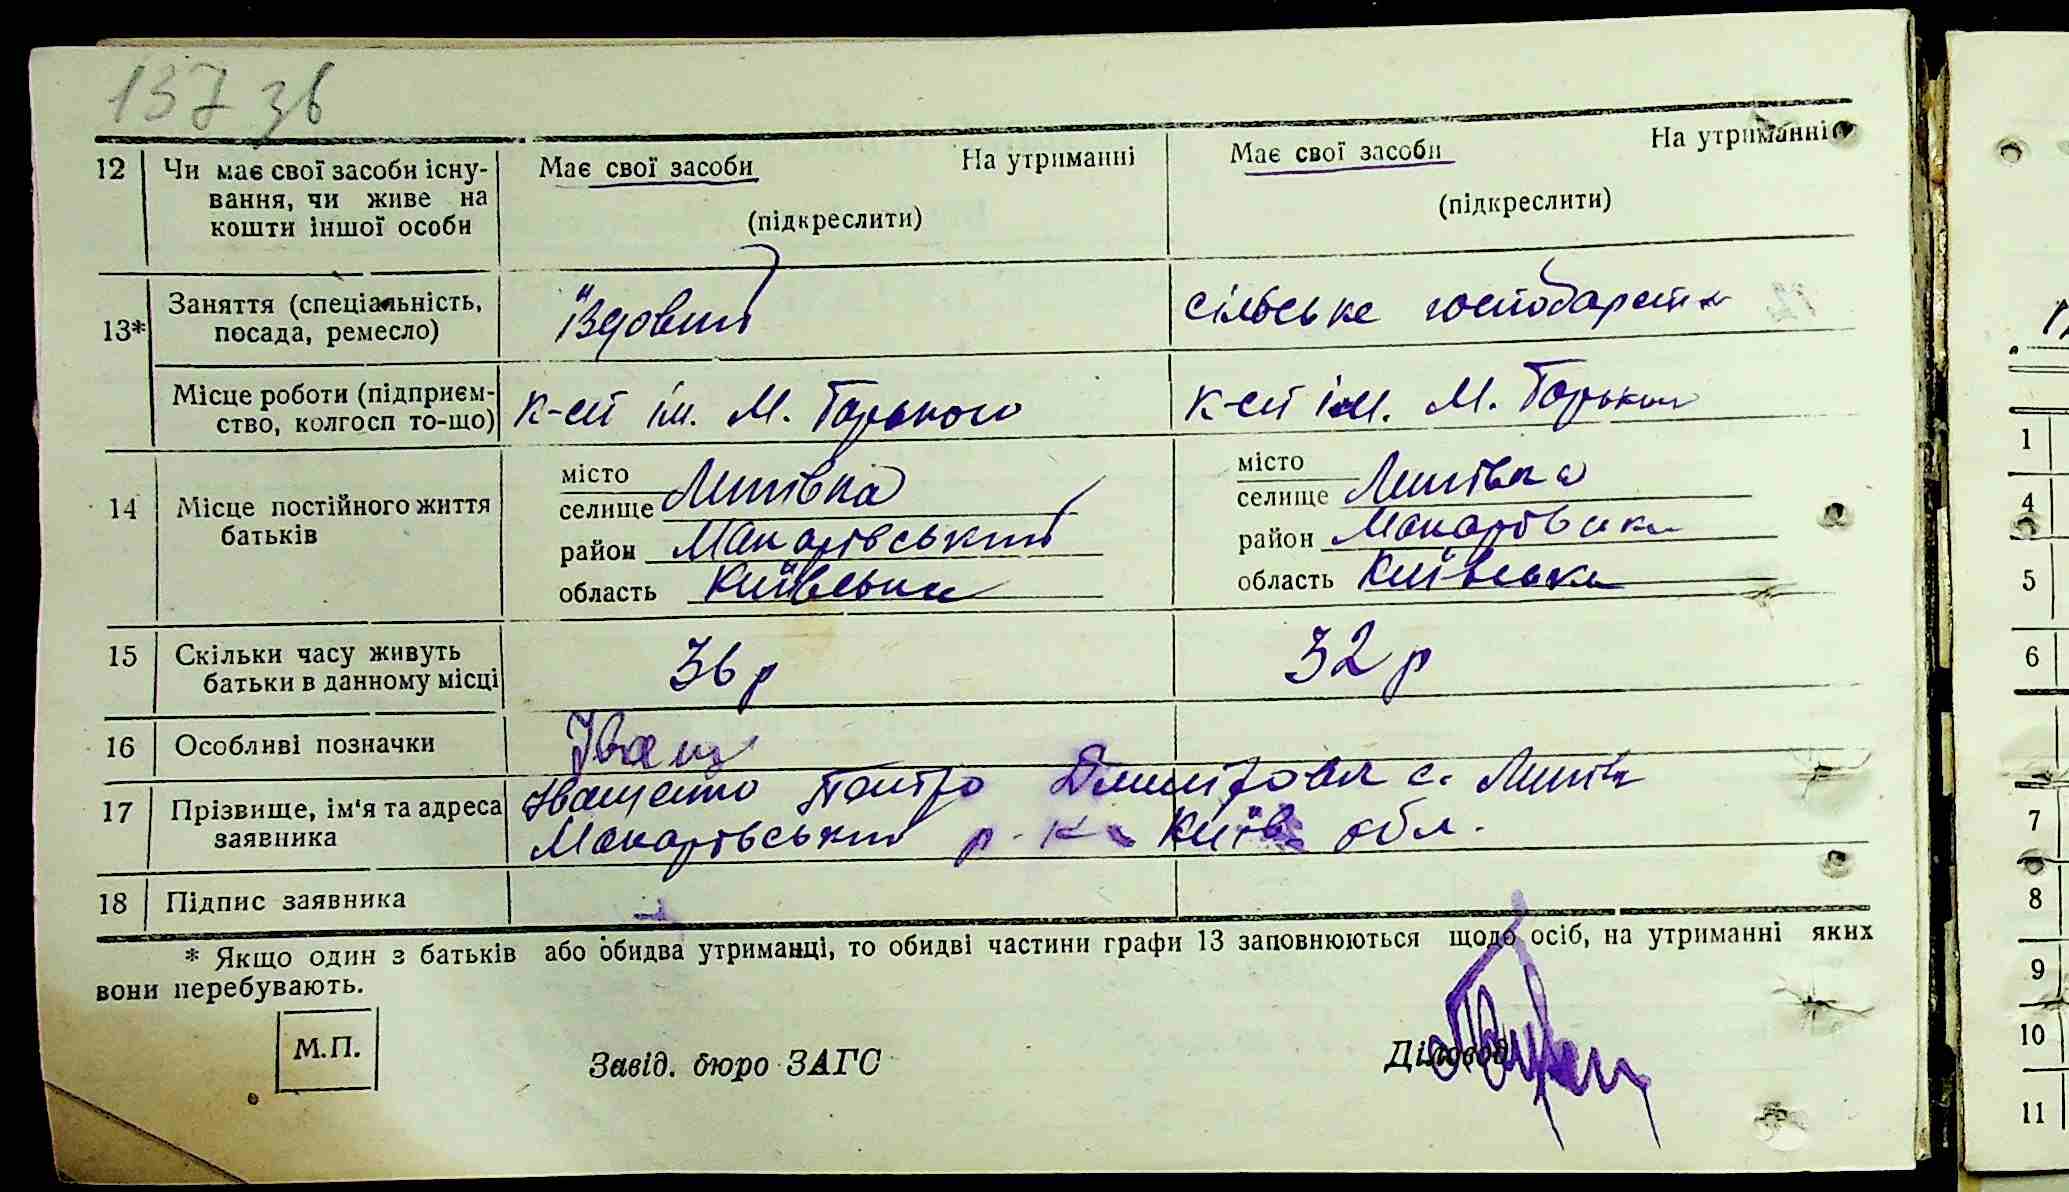 137 зв
12 Чи має свої засоби існу- Має свої засоби На утриманні Має свої засоби На утриманні
вання, чи живе на
кошти іншої особи (підкреслити) (підкреслити)
13* Заняття (спеціальність, їздовий сільське господарств
посада, ремесло)
Місце роботи (підприєм- к-сп ім. М. Горького к-сп ім. М. Горьког
ство, колгосп то-що)
14 Місце постійного життя
батьків
місто
селище Липівка
район Макарівський
область Київська
місто
селище Липівка
район Макарівськи
область Київська
15 Скільки часу живуть 36 р 32 р
батьки в данному місці
16 Особливі позначки Іващ
17 Прізвище, ім'я та адреса Іващенко Петро Дмитров с. Липівк
заявника Макарівський р. Київ обл.
18 Підпис заявника
* Якщо один з батьків або обидва утриманці, то обидві частини графи 13 заповнюються щодо осіб, на утриманні яких
вони перебувають.
М.П.
Завід. бюро ЗАГС Діловод
1
4
5
6
7
8
9
10
11